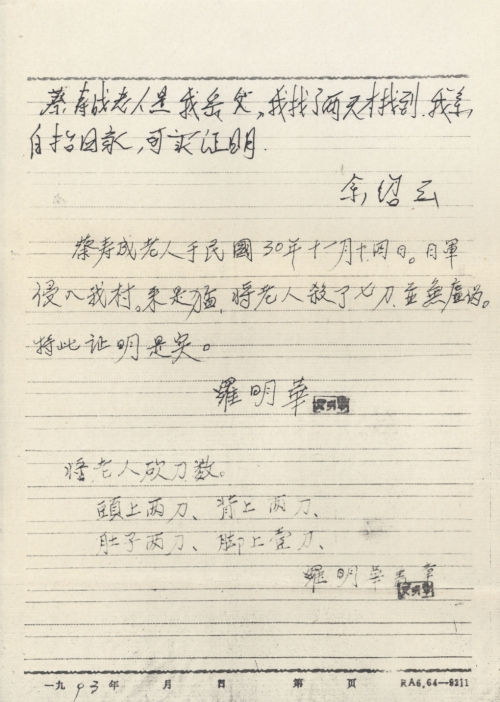 蔡寿成老人是我岳父,我找了两天才找到.我亲
自抬回家,可实证明.
余绍云
蔡寿成老人于民國30年十一月十四日。日軍
侵入我村。来是猛,将老人殺了七刀.並無虛偽。
特此证明是实。
羅明華
将老人砍刀数。
頭上两刀、背上两刀、
肚子两刀、脚上壹刀、
羅明華 章
一九93年 月 日 第 页 RA6.64—9211